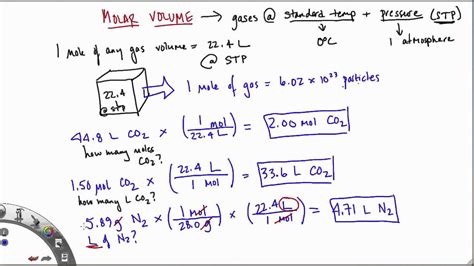 MOLAR VOLUME → gases @ standard temp + pressure (STP)
0°C 1 atmosphere
1 mole of any gas volume = 22.4 L
@ STP
22.4
@ STP
1 mole of gas = 6.02 x 10²³ particles
44.8 L CO₂ x (1 mol / 22.4 L) = 2.00 mol CO₂
how many moles
CO₂?
1.50 mol CO₂ x (22.4 L / 1 mol) = 33.6 L CO₂
how many L CO₂?
5.89 g N₂ x (1 mol / 28.0 g) x (22.4 L / 1 mol) = 4.71 L N₂
L of N₂?